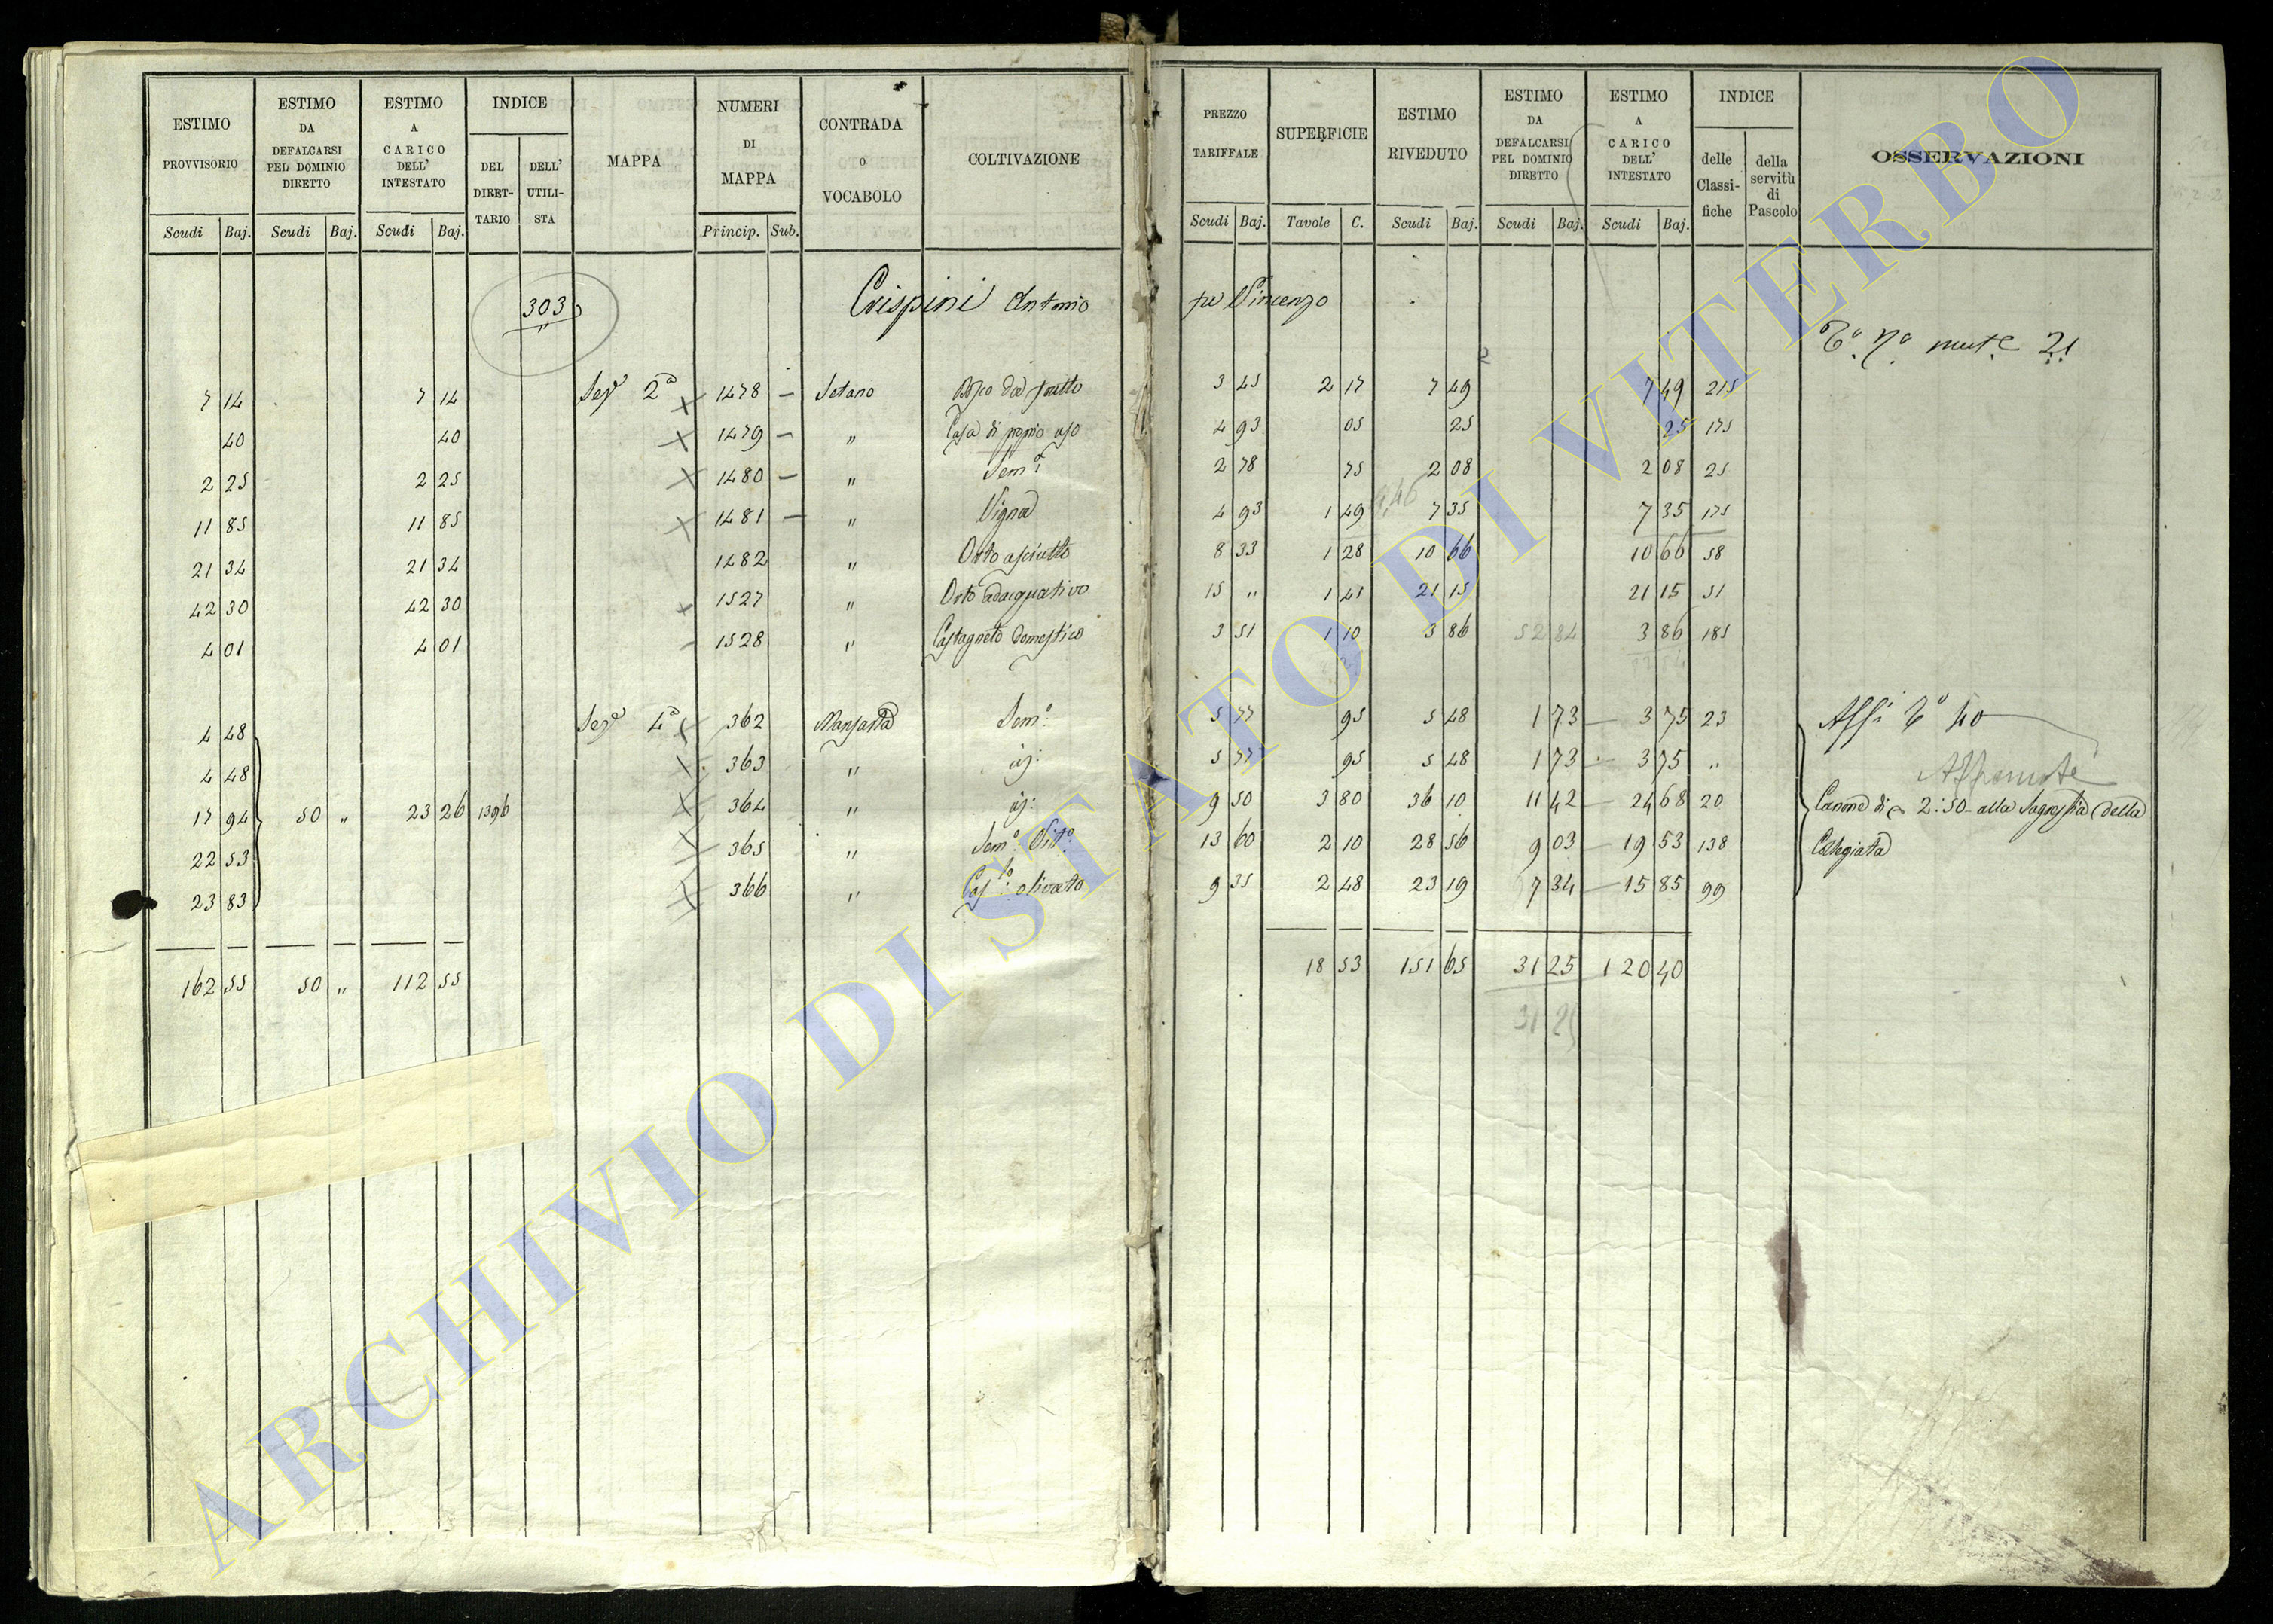 ESTIMO PROVVISORIO Scudi Baj.
ESTIMO DA DEFALCARSI PEL DOMINIO DIRETTO Scudi Baj.
ESTIMO A CARICO DELL' INTESTATO Scudi Baj.
INDICE DEL DIRET-TARIO DELL' UTILI-STA
MAPPA
NUMERI DI MAPPA Princip. Sub.
CONTRADA o VOCABOLO
COLTIVAZIONE
PREZZO TARIFFALE Scudi Baj.
SUPERFICIE Tavole C.
ESTIMO RIVEDUTO Scudi Baj.
ESTIMO DA DEFALCARSI PEL DOMINIO DIRETTO Scudi Baj.
ESTIMO A CARICO DELL' INTESTATO Scudi Baj.
INDICE delle Classi-fiche della servitù di Pascolo
OSSERVAZIONI
303 Crispini Antonio fu Vincenzo
mute 21
7 14 7 14 Sez. 2a 1478 — Setano 3 45 2 17 7 49 7 49 215
40 40 1479 — " Casa di propio uso 4 93 05 25 25 175
2 25 2 25 1480 — " Sem. 2 78 75 2 08 2 08 25
11 85 11 85 1481 — " Vigna 4 93 1 49 7 35 7 35 175
21 34 21 34 1482 " Orto asciutto 8 33 1 28 10 66 10 66 58
42 30 42 30 1527 " Orto adacquativo 15 " 1 41 21 15 21 15 51
4 01 4 01 1528 " Castagneto domestico 3 51 1 10 3 86 52 84 3 86 185
4 48 Sez. 4a 362 Sem.o 5 77 95 5 48 1 73 — 3 75 23 Affi 40
4 48 363 " id: 5 77 95 5 48 1 73 3 75 "
17 94 50 " 23 26 1396 364 " id: 9 50 3 80 36 10 11 42 — 24 68 20 Canone di 2:50 alla Sagrestia della
22 53 365 " Sem.o Vit.o 13 60 2 10 28 56 9 03 — 19 53 138 Collegiata
23 83 366 " olivato 9 35 2 48 23 19 7 34 — 15 85 99
162 55 50 " 112 55 18 53 151 65 31 25 120 40
31 25
ARCHIVIO DI STATO DI VITERBO